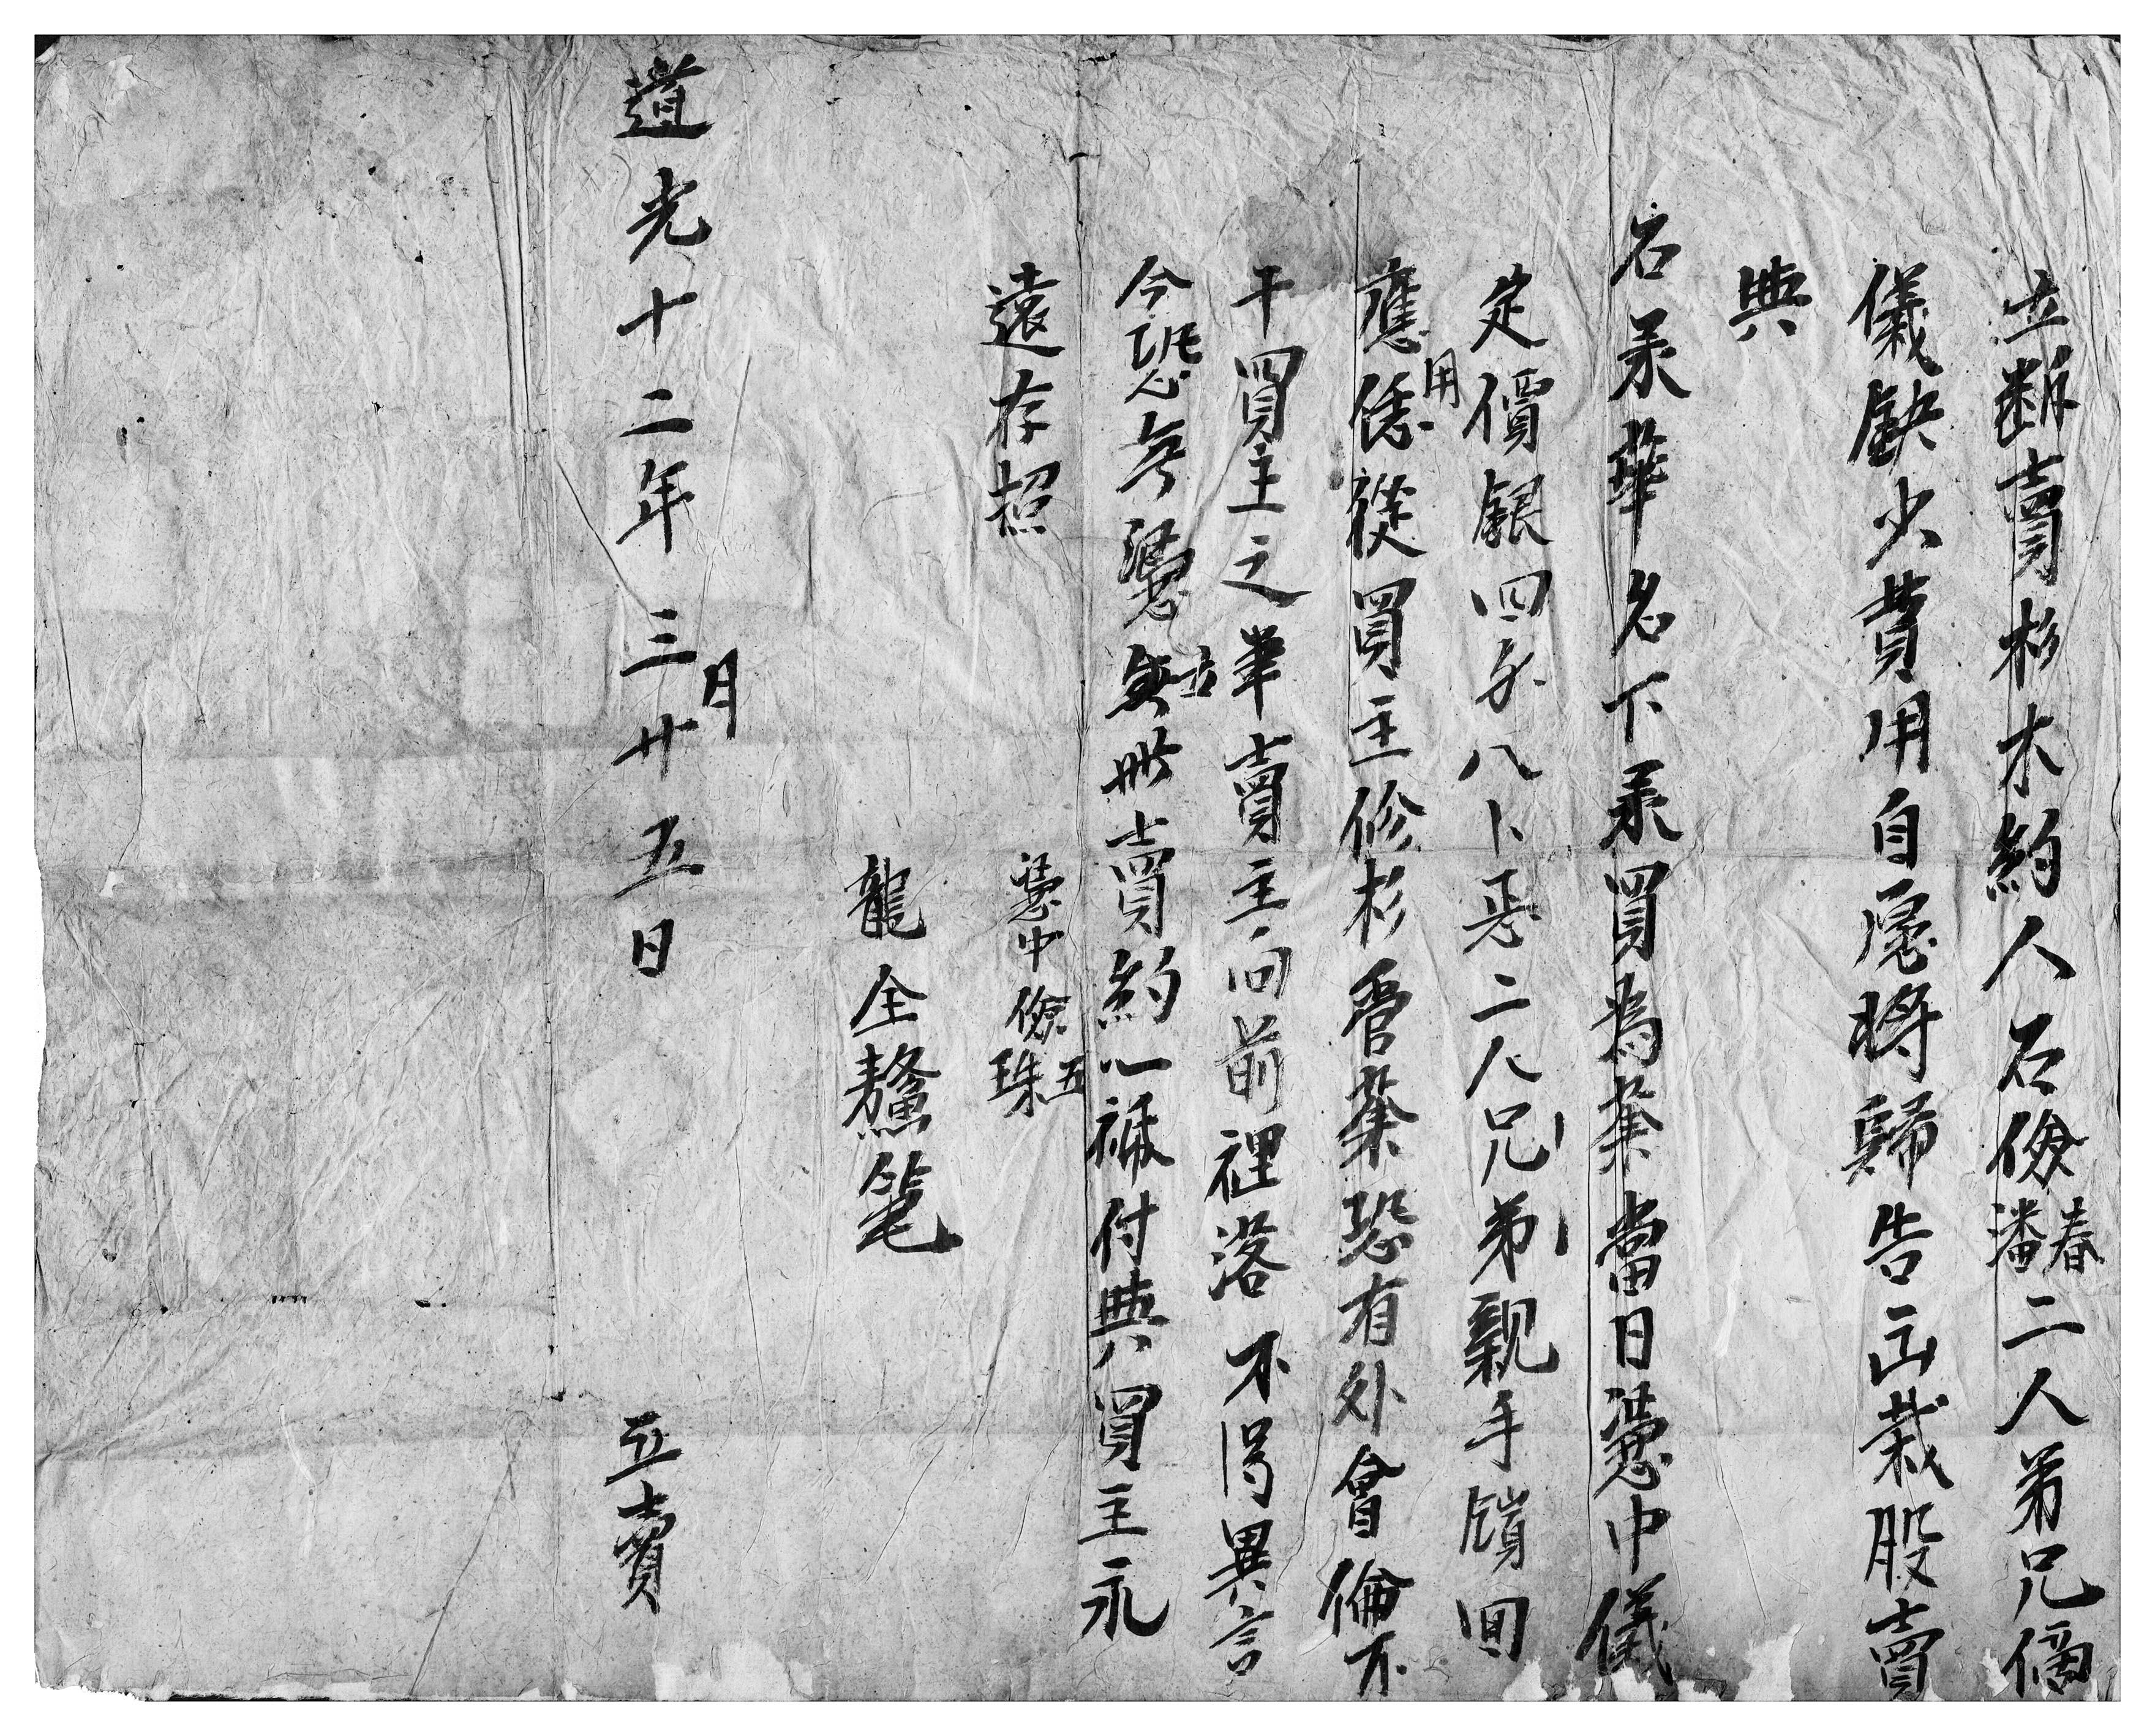 立断賣杉木約人石儉潘春二人弟兄偹
儀缺少費用自愿将歸告山栽股賣
與
石承華名下承買為業當日憑中儀
定價銀四永八卜悉二人兄弟親手領回
應用恁從買主修杉管業恐有外會倫不
干買主之事賣主向前裡落不得異言
今恐無憑立此賣約一祇付與買主永
遠存照
憑中儉珠五
龍全鰲筆
道光十二年三月廿五日 立賣